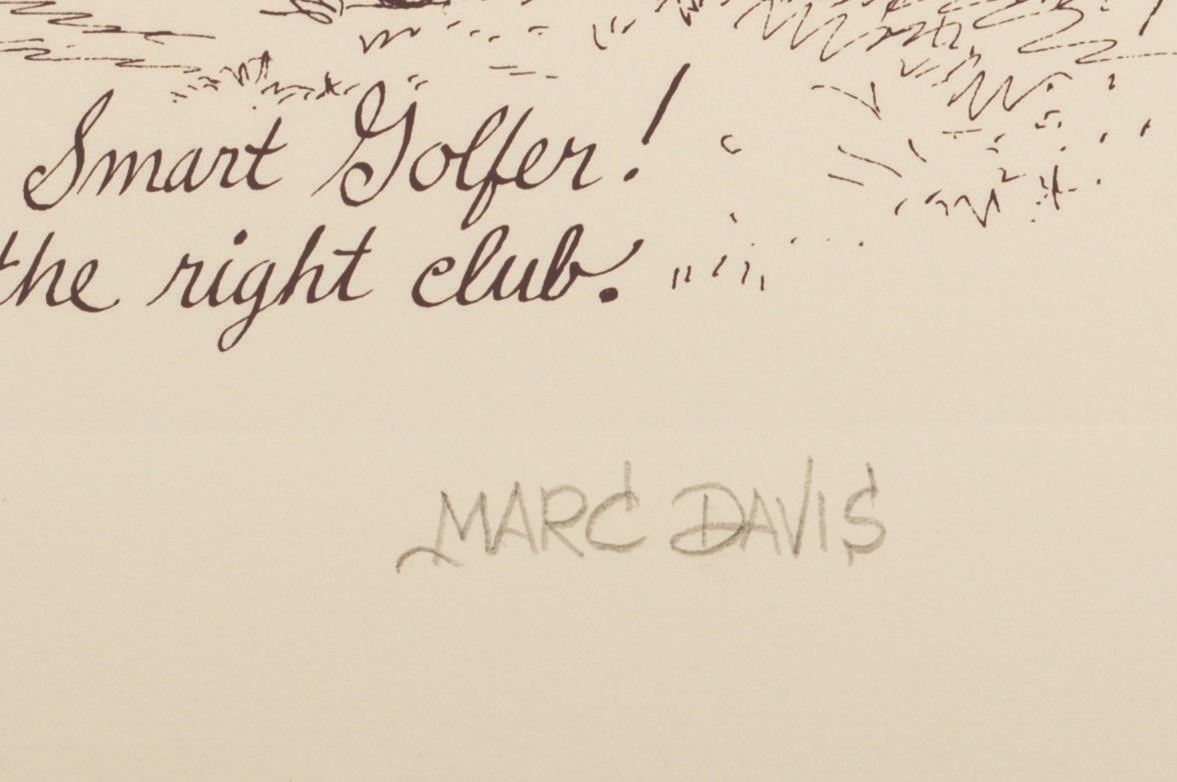 Smart Golfer!
the right club.
MARC DAVIS